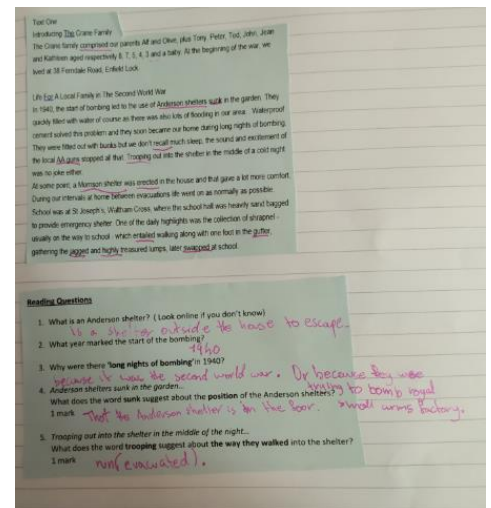 Text One
Introducing The Crane Family
The Crane family comprised our parents Alf and Olive, plus Tony, Peter, Ted, John, Jean
and Kathleen aged respectively 8, 7, 5, 4, 3 and a baby. At the beginning of the war, we
lived at 38 Ferndale Road, Enfield Lock.
Life For A Local Family in The Second World War
In 1940, the start of bombing led to the use of Anderson shelters sunk in the garden. They
quickly filled with water of course as there was also lots of flooding in our area. Waterproof
cement solved this problem and they soon became our home during long nights of bombing.
They were fitted out with bunks but we don't recall much sleep, the sound and excitement of
the local AA guns stopped all that. Trooping out into the shelter in the middle of a cold night
was no joke either.
At some point, a Morrison shelter was erected in the house and that gave a lot more comfort.
During our intervals at home between evacuations life went on as normally as possible.
School was at St Joseph's, Waltham Cross, where the school hall was heavily sand bagged
to provide emergency shelter. One of the daily highlights was the collection of shrapnel -
usually on the way to school - which entailed walking along with one foot in the gutter,
gathering the jagged and highly treasured lumps, later swapped at school.
Reading Questions
1. What is an Anderson shelter? (Look online if you don't know)
Is a shelter outside the house to escape.
2. What year marked the start of the bombing?
1940
3. Why were there 'long nights of bombing' in 1940?
because it was the second world war. Or because they were
trying to bomb royal
small arms factory.
4. Anderson shelters sunk in the garden...
What does the word sunk suggest about the position of the Anderson shelters?
1 mark That the Anderson shelter is in the floor.
5. Trooping out into the shelter in the middle of the night...
What does the word trooping suggest about the way they walked into the shelter?
1 mark run(evacuated).